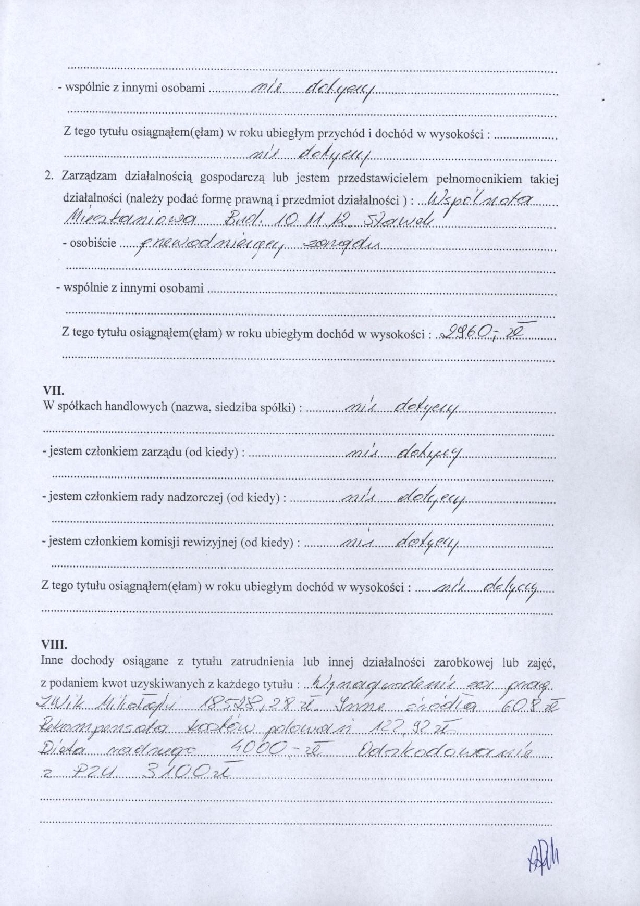 - wspólnie z innymi osobami nie dotyczy
Z tego tytułu osiągnąłem(ęłam) w roku ubiegłym przychód i dochód w wysokości :
nie dotyczy
2. Zarządzam działalnością gospodarczą lub jestem przedstawicielem pełnomocnikiem takiej
działalności (należy podać formę prawną i przedmiot działalności ) : Wspólnota
Mieszkaniowa Bud. 10 11 12
- osobiście przewodniczący zarządu
- wspólnie z innymi osobami
Z tego tytułu osiągnąłem(ęłam) w roku ubiegłym dochód w wysokości : 2260,- zł
VII.
W spółkach handlowych (nazwa, siedziba spółki) : nie dotyczy
- jestem członkiem zarządu (od kiedy) : nie dotyczy
- jestem członkiem rady nadzorczej (od kiedy) : nie dotyczy
- jestem członkiem komisji rewizyjnej (od kiedy) : nie dotyczy
Z tego tytułu osiągnąłem(ęłam) w roku ubiegłym dochód w wysokości : nie dotyczy
VIII.
Inne dochody osiągane z tytułu zatrudnienia lub innej działalności zarobkowej lub zajęć,
z podaniem kwot uzyskiwanych z każdego tytułu : Wynagrodzenie za pracę
ZWiK Mikołajki 18528,28 zł Inne źródła 608 zł
Rekompensata kosztów 122,92 zł
Dieta radnego 4000,- zł Odszkodowanie
z PZU 3100 zł